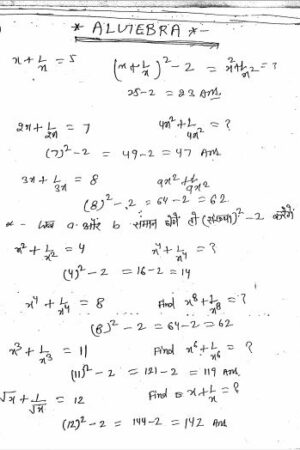 * ALGEBRA *-
x + 1/x = 5 (x + 1/x)² - 2 = x² + 1/x² = ?
25 - 2 = 23 Ans.
2x + 1/2x = 7 4x² + 1/4x² = ?
(7)² - 2 = 49 - 2 = 47 Ans
3x + 1/3x = 8 9x² + 1/9x²
(8)² - 2 = 64 - 2 = 62
* - जब a और b समान होंगे तो (संख्या)² - 2 करेंगे
x² + 1/x² = 4 x⁴ + 1/x⁴ = ?
(4)² - 2 = 16 - 2 = 14
x⁴ + 1/x⁴ = 8 Find x⁸ + 1/x⁸ = ?
(8)² - 2 = 64 - 2 = 62
x³ + 1/x³ = 11 Find x⁶ + 1/x⁶ = ?
(11)² - 2 = 121 - 2 = 119 Ans
√x + 1/√x = 12 Find x + 1/x = ?
(12)² - 2 = 144 - 2 = 142 Ans